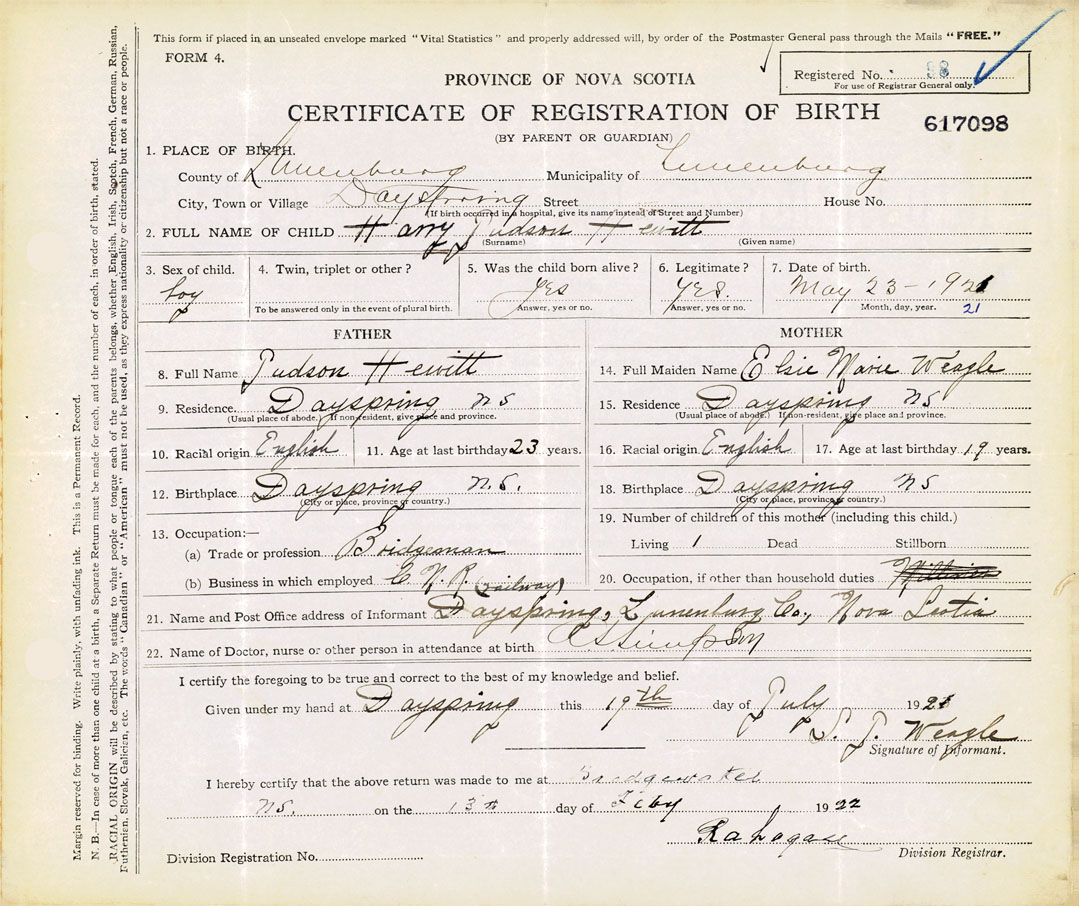 This form if placed in an unsealed envelope marked "Vital Statistics" and properly addressed will, by order of the Postmaster General pass through the Mails "FREE."
FORM 4.
Registered No. 98
For use of Registrar General only.
PROVINCE OF NOVA SCOTIA
CERTIFICATE OF REGISTRATION OF BIRTH
617098
(BY PARENT OR GUARDIAN)
1. PLACE OF BIRTH.
County of Lunenburg Municipality of Lunenburg
City, Town or Village Dayspring Street House No.
(If birth occurred in a hospital, give its name instead of Street and Number)
2. FULL NAME OF CHILD Harry Judson Hewitt
(Surname) (Given name)
3. Sex of child. 4. Twin, triplet or other? 5. Was the child born alive? 6. Legitimate? 7. Date of birth.
boy yes yes. May 23 - 1921
To be answered only in the event of plural birth. Answer, yes or no. Answer, yes or no. Month, day, year. 21
FATHER
8. Full Name Judson Hewitt
9. Residence. Dayspring NS
(Usual place of abode.) If non-resident, give place and province.
10. Racial origin English 11. Age at last birthday 23 years.
12. Birthplace Dayspring N.S.
(City or place, province or country.)
13. Occupation:—
(a) Trade or profession Bridgeman
(b) Business in which employed C. N. R. (railway)
MOTHER
14. Full Maiden Name Elsie Marie Weagle
15. Residence Dayspring NS
(Usual place of abode.) If non-resident, give place and province.
16. Racial origin English 17. Age at last birthday 19 years.
18. Birthplace Dayspring NS
(City or place, province or country.)
19. Number of children of this mother (including this child.)
Living 1 Dead Stillborn
20. Occupation, if other than household duties
21. Name and Post Office address of Informant Dayspring, Lunenburg Co., Nova Scotia
22. Name of Doctor, nurse or other person in attendance at birth
I certify the foregoing to be true and correct to the best of my knowledge and belief.
Given under my hand at Dayspring this 19th day of July 1921
S. J. Weagle
Signature of Informant.
I hereby certify that the above return was made to me at Bridgewater
NS. on the 13th day of Feby 1922
Division Registration No. Division Registrar.
Margin reserved for binding. Write plainly, with unfading ink. This is a Permanent Record.
N. B.—In case of more than one child at a birth, a Separate Return must be made for each, and the number of each, in order of birth, stated.
RACIAL ORIGIN will be described by stating to what people or tongue each of the parents belongs, whether English, Irish, Scotch, French, German, Russian,
Ruthenian, Slovak, Galician, etc. The words "Canadian" or "American" must not be used, as they express nationality or citizenship but not a race or people.